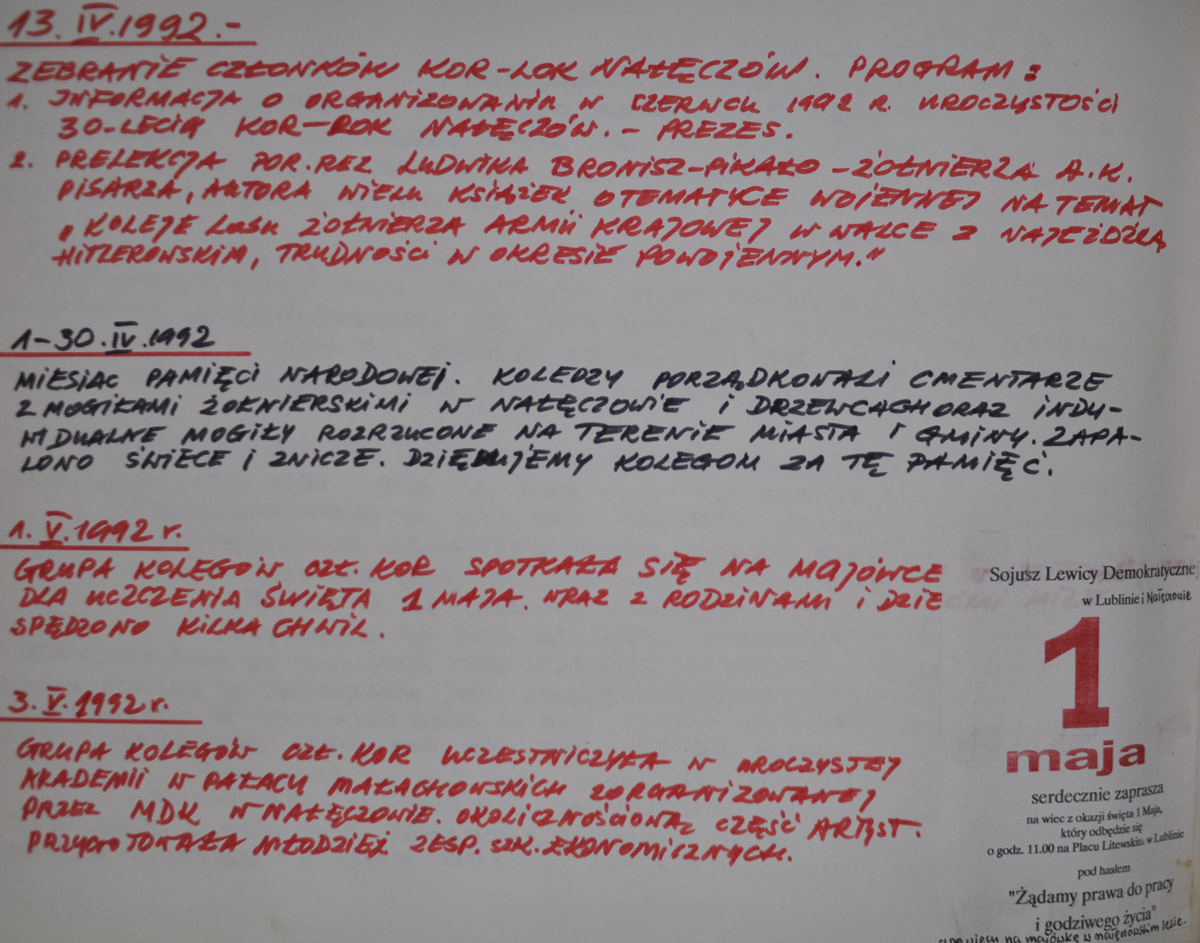 13.IV.1992.-
ZEBRANIE CZŁONKÓW KOR-LOK NAŁĘCZÓW. PROGRAM:
1. INFORMACJA O ORGANIZOWANIU W CZERWCU 1992 R. UROCZYSTOŚCI
30-LECIA KOR-LOK NAŁĘCZÓW. - PREZES.
2. PRELEKCJA POR.REZ LUDWIKA BRONISZ-PIKAŁO - ŻOŁNIERZA A.K.
PISARZA, AUTORA WIELU KSIĄŻEK O TEMATYCE WOJENNEJ NA TEMAT
„KOLEJE LOSU ŻOŁNIERZA ARMII KRAJOWEJ W WALCE Z NAJEŹDŹCĄ
HITLEROWSKIM, TRUDNOŚCI W OKRESIE POWOJENNYM."
1-30.IV.1992
MIESIĄC PAMIĘCI NARODOWEJ. KOLEDZY PORZĄDKOWALI CMENTARZE
Z MOGIŁAMI ŻOŁNIERSKIMI W NAŁĘCZOWIE I DRZEWCACH ORAZ INDY-
WIDUALNE MOGIŁY ROZRZUCONE NA TERENIE MIASTA I GMINY. ZAPA-
LONO ŚWIECE I ZNICZE. DZIĘKUJEMY KOLEGOM ZA TĘ PAMIĘĆ.
1.V.1992 r.
GRUPA KOLEGÓW CZŁ. KOR SPOTKAŁA SIĘ NA MAJÓWCE
DLA UCZCZENIA ŚWIĘTA 1 MAJA. WRAZ Z RODZINAMI I DZIE
SPĘDZONO KILKA CHWIL.
3.V.1992 r.
GRUPA KOLEGÓW CZŁ. KOR UCZESTNICZYŁA W UROCZYSTEJ
AKADEMII W PAŁACU MAŁACHOWSKICH ZORGANIZOWANEJ
PRZEZ MDK W NAŁĘCZOWIE. OKOLICZNOŚCIOWĄ CZĘŚĆ ARTYST.
PRZYGOTOWAŁA MŁODZIEŻ ZESP. SZK. EKONOMICZNYCH.
Sojusz Lewicy Demokratycznej
w Lublinie i Nałęczowie
1
maja
serdecznie zaprasza
na wiec z okazji święta 1 Maja,
który odbędzie się
o godz. 11.00 na Placu Litewskim w Lublinie
pod hasłem
"Żądamy prawa do pracy
i godziwego życia"
na majówkę w lesie.